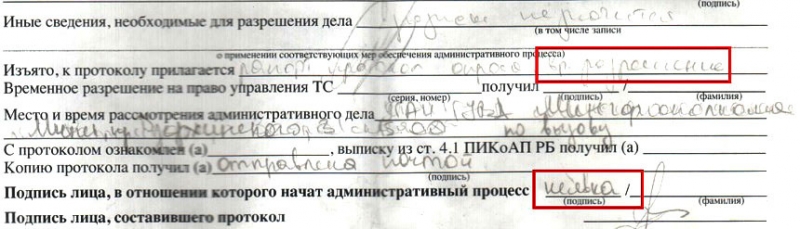 (подпись)
Иные сведения, необходимые для разрешения дела
(в том числе записи
о применении соответствующих мер обеспечения административного процесса)
Изъято, к протоколу прилагается рапорт, протокол опроса, вр. разрешение
Временное разрешение на право управления ТС получил /
(серия, номер) (подпись) (фамилия)
Место и время рассмотрения административного дела ГАИ ГУВД Мингорисполкома
по вызову
С протоколом ознакомлен (а) , выписку из ст. 4.1 ПИКоАП РБ получил (а)
Копию протокола получил (а) отправлена почтой
(подпись)
Подпись лица, в отношении которого начат административный процесс неявка /
(подпись) (фамилия)
Подпись лица, составившего протокол